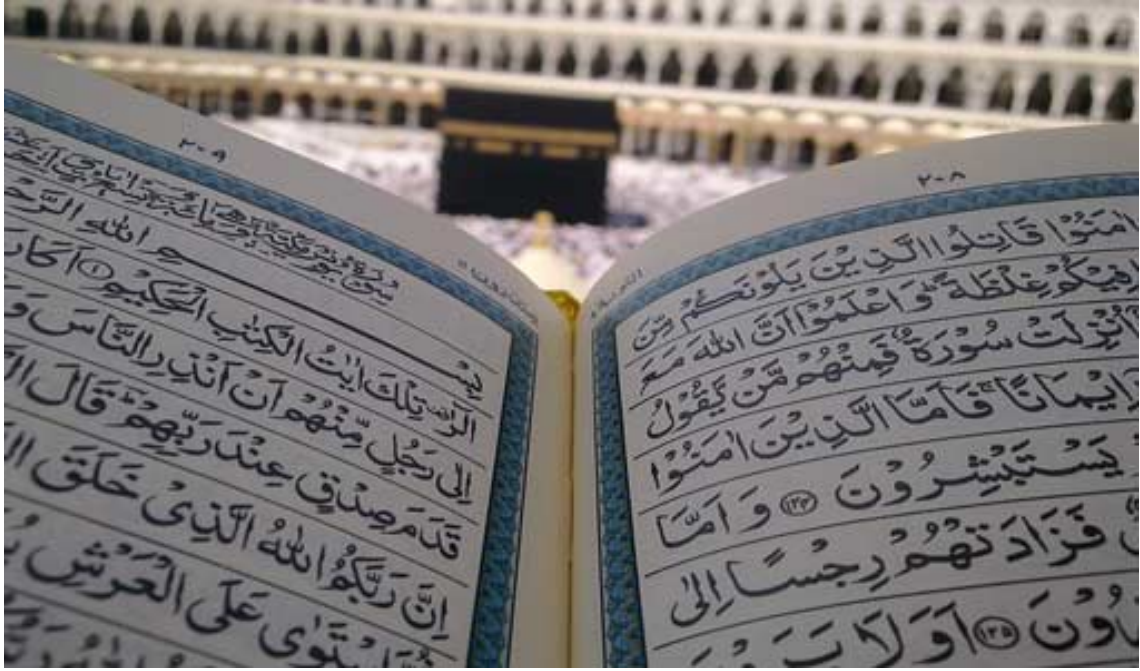 ٢٠٨
اٰمَنُوْا قَاتِلُوا الَّذِيْنَ يَلُوْنَكُمْ مِّنَ
فِيْكُمْ غِلْظَةً ؕ وَاعْلَمُوْۤا اَنَّ اللّٰهَ مَعَ
اُنْزِلَتْ سُوْرَةٌ فَمِنْهُمْ مَّنْ يَّقُوْلُ
اِيْمَانًا ۚ فَاَمَّا الَّذِيْنَ اٰمَنُوْا
يَسْتَبْشِرُوْنَ ﴿۱۲۴﴾ وَ اَمَّا
فَزَادَتْهُمْ رِجْسًا اِلٰى
﴿۱۲۵﴾ اَوَلَا
٢٠٩
سُوْرَةُ يُوْنُسَ
بِسْمِ اللّٰهِ
الٓرٰ ۟ تِلْكَ اٰيٰتُ الْكِتٰبِ الْحَكِيْمِ ﴿۱﴾ اَكَانَ
اِلٰى رَجُلٍ مِّنْهُمْ اَنْ اَنْذِرِ النَّاسَ
قَدَمَ صِدْقٍ عِنْدَ رَبِّهِمْ ؕ قَالَ
اِنَّ رَبَّكُمُ اللّٰهُ الَّذِيْ خَلَقَ
اسْتَوٰى عَلَى الْعَرْشِ